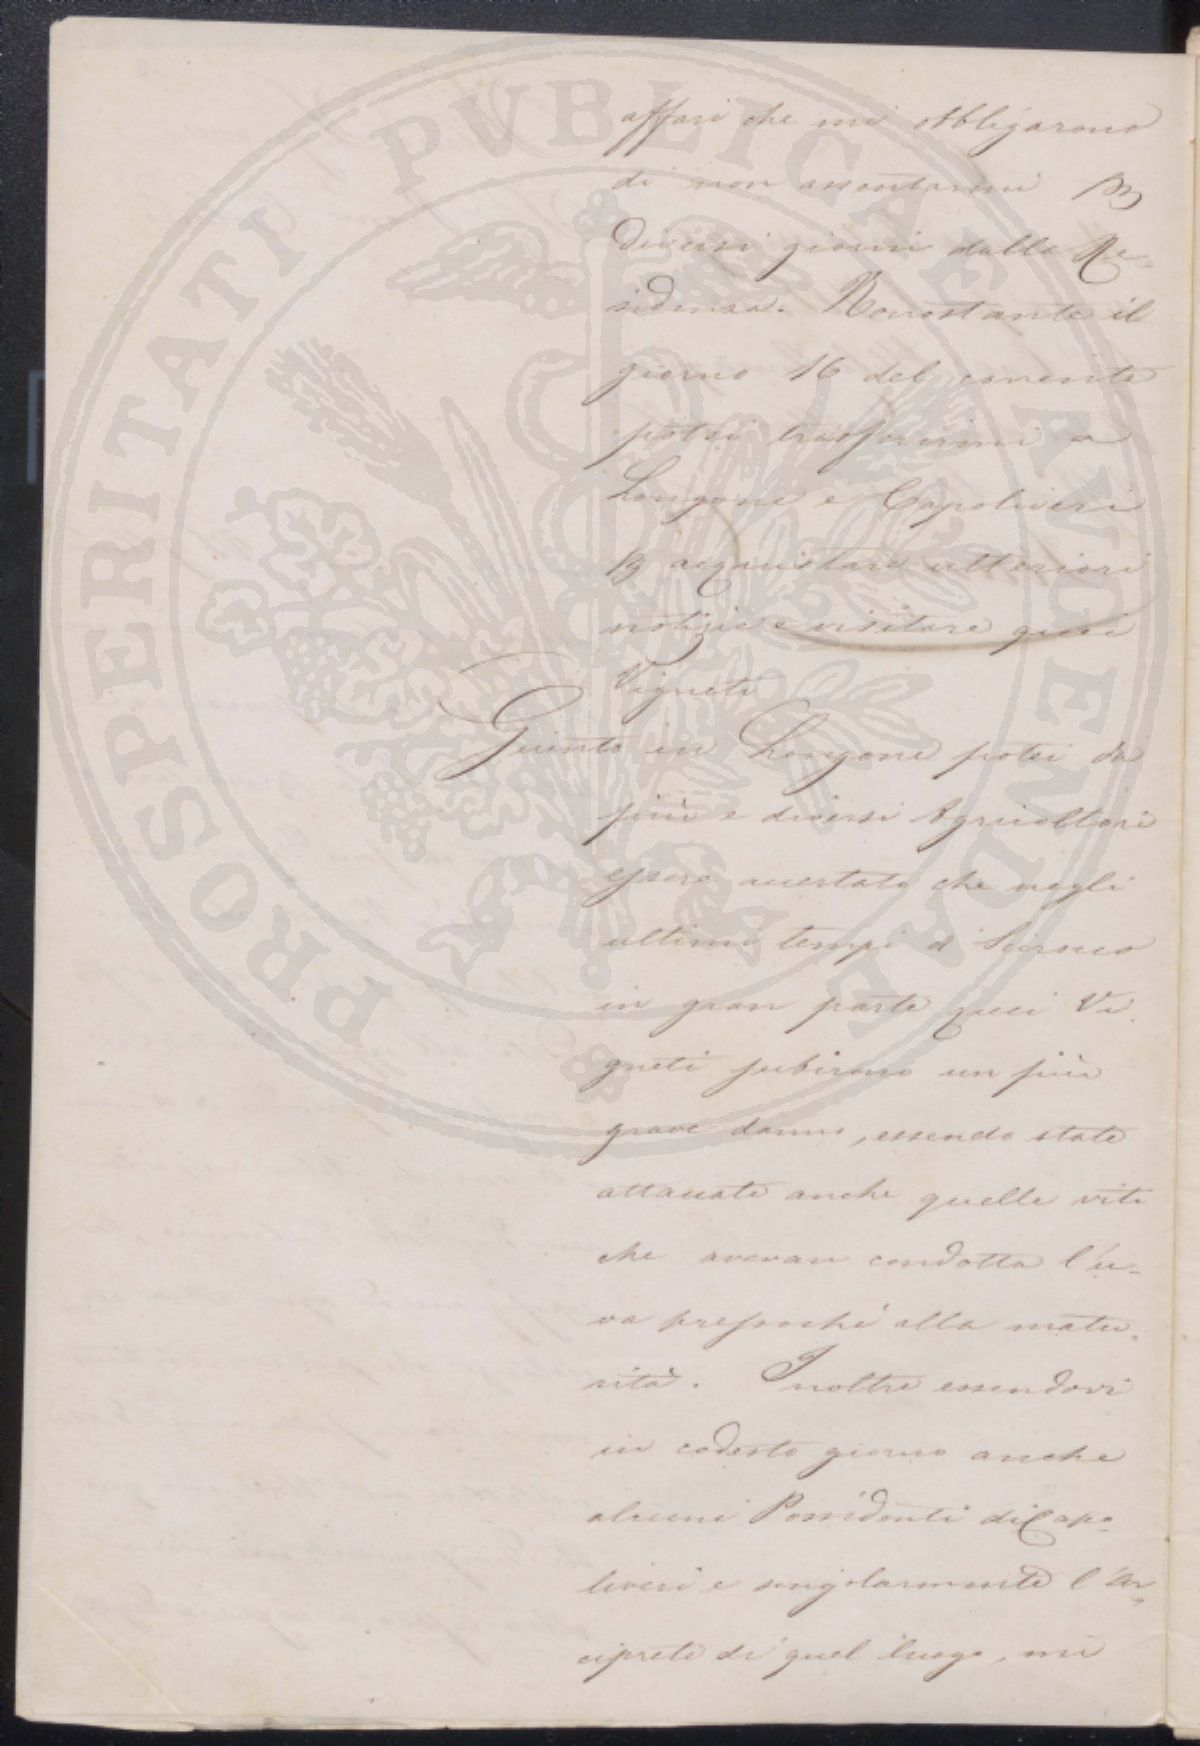 PROSPERITATI PVBLICAE AVGENDAE
affari che mi obbligarono
di non assentarmi per
diversi giorni dalla Re-
sidenza. Nonostante il
giorno 16 del corrente
potei trasferirmi a
Longone e Capoliveri
per acquistare ulteriori
notizie e visitare quei
Vigneti
Giunto in Longone potei da
più e diversi Agricoltori
essere accertato che negli
ultimi tempi di Scirocco
in gran parte quei Vi-
gneti subirono un più
grave danno, essendo state
attaccate anche quelle viti
che avevan condotta l'u-
va pressoché alla matu-
rità. Inoltre essendovi
in codesto giorno anche
alcuni Possidenti di Capo-
liveri e singolarmente l'Ar-
ciprete di quel luogo, mi